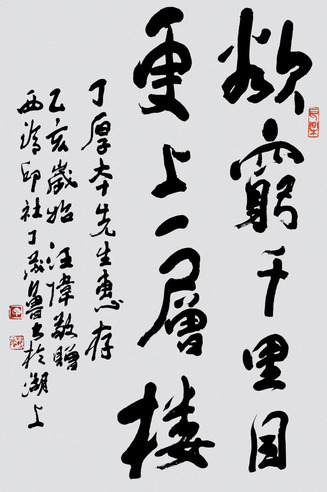 欲窮千里目
更上一層楼
丁厚本先生惠存
乙亥歲始汪偉敬贈
西泠印社丁茂魯书於湖上